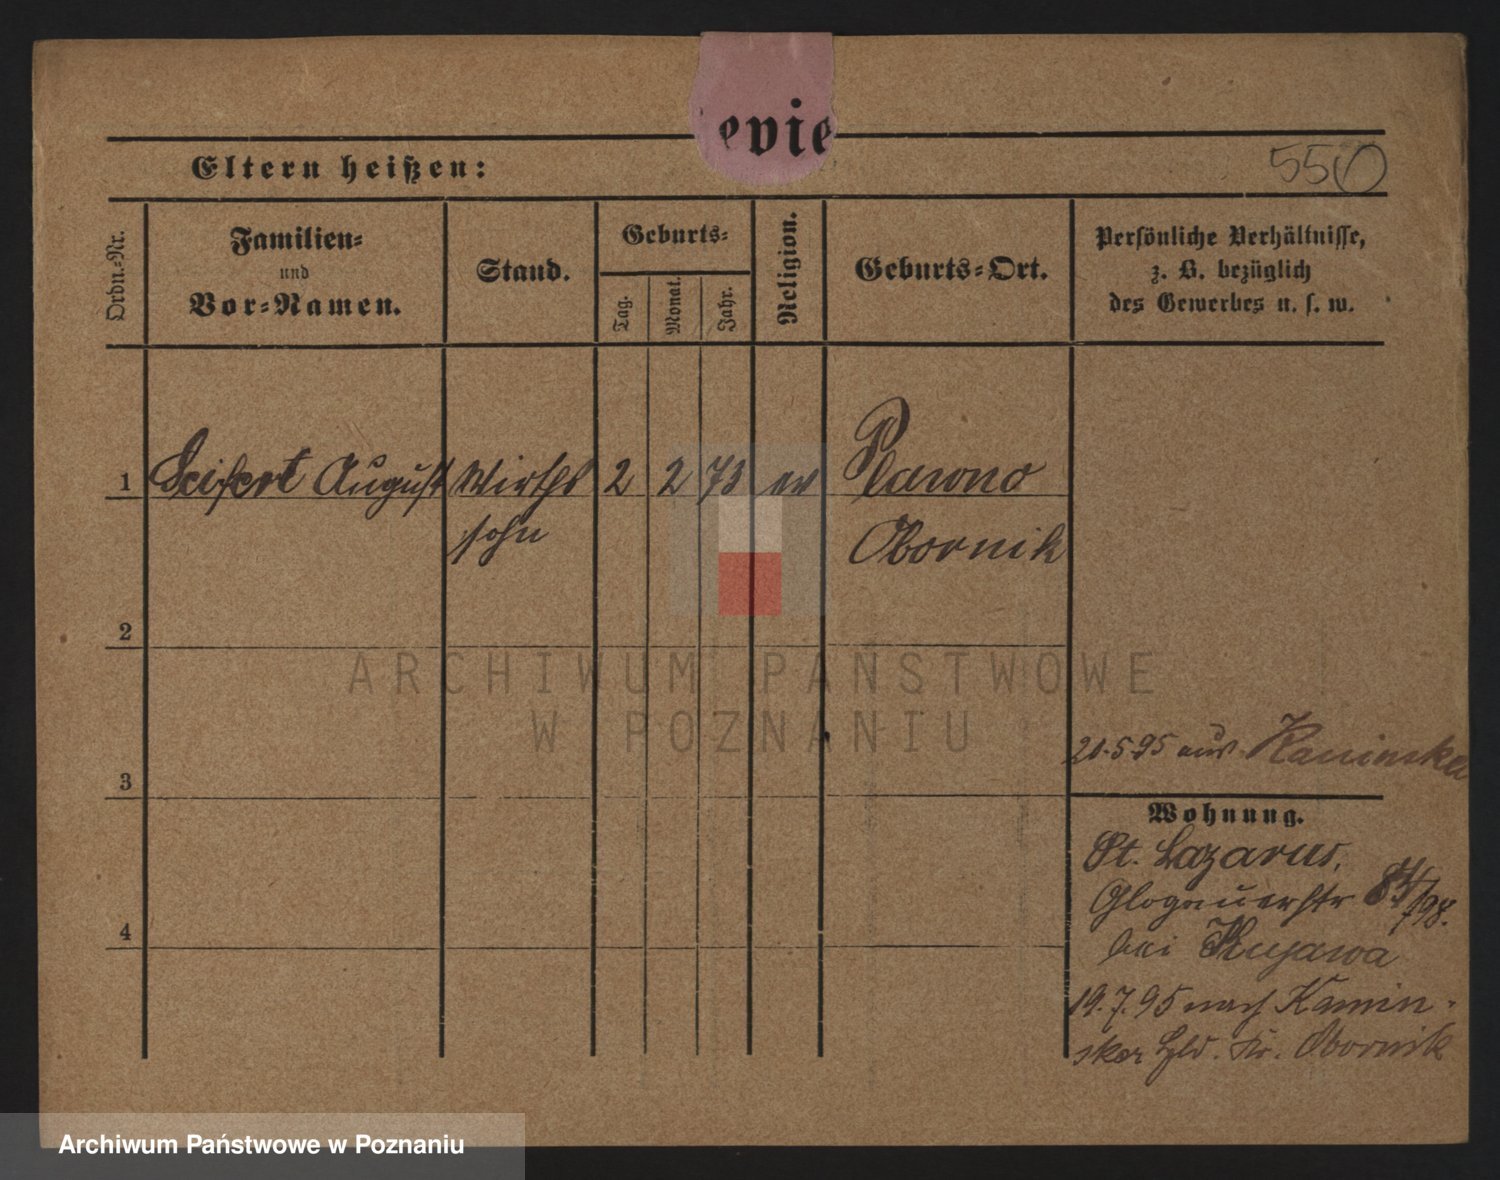 evie
Eltern heißen:
550
Ordn.-Nr.
Familien-
und
Vor-Namen.
Stand.
Geburts-
Tag.
Monat.
Jahr.
Religion.
Geburts-Ort.
Persönliche Verhältnisse,
z. B. bezüglich
des Gewerbes u. s. w.
1 Seifert August Wirths 2 2 73 ev Plawno
sohn Obornik
2
3
4
21.5.95 aus Kaminsker
Wohnung.
St. Lazarus,
Glogauerstr 84/98.
bei Kujawa
19.7.95 nach Kamin-
sker Hld. Kr. Obornik
ARCHIWUM PAŃSTWOWE
W POZNANIU
Archiwum Państwowe w Poznaniu